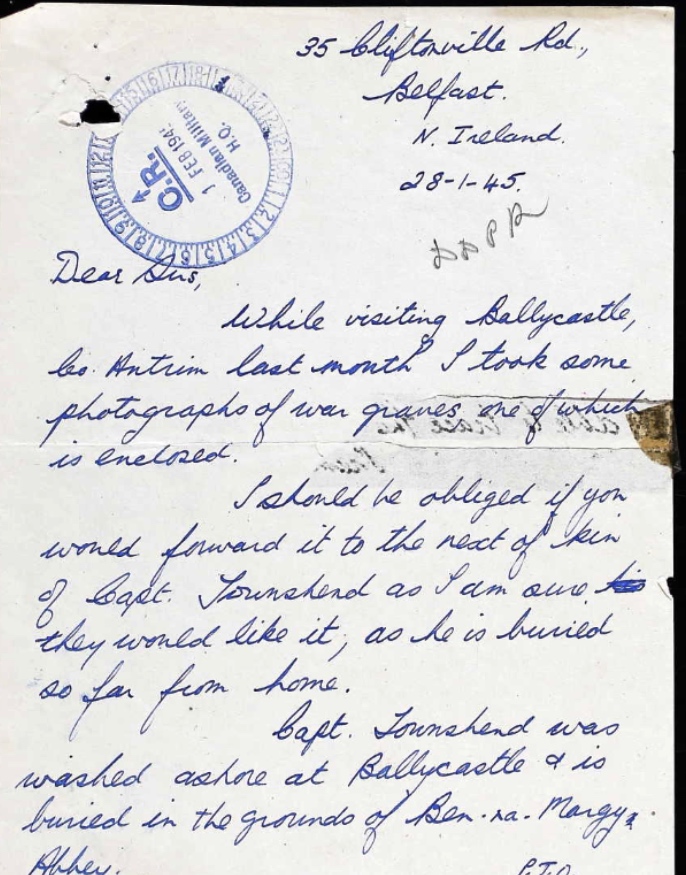 35 Cliftonville Rd.,
Belfast.
N. Ireland.
28-1-45.
C.R.
1 FEB 194
Canadian Military
H.Q.
Dear Sirs,
While visiting Ballycastle,
Co. Antrim last month I took some
photographs of war graves, one of which
is enclosed.
I should be obliged if you
would forward it to the next of kin
of Capt. Townshend as I am sure
they would like it, as he is buried
so far from home.
Capt. Townshend was
washed ashore at Ballycastle & is
buried in the grounds of Bon-na-Margy
Abbey.
P.T.O.